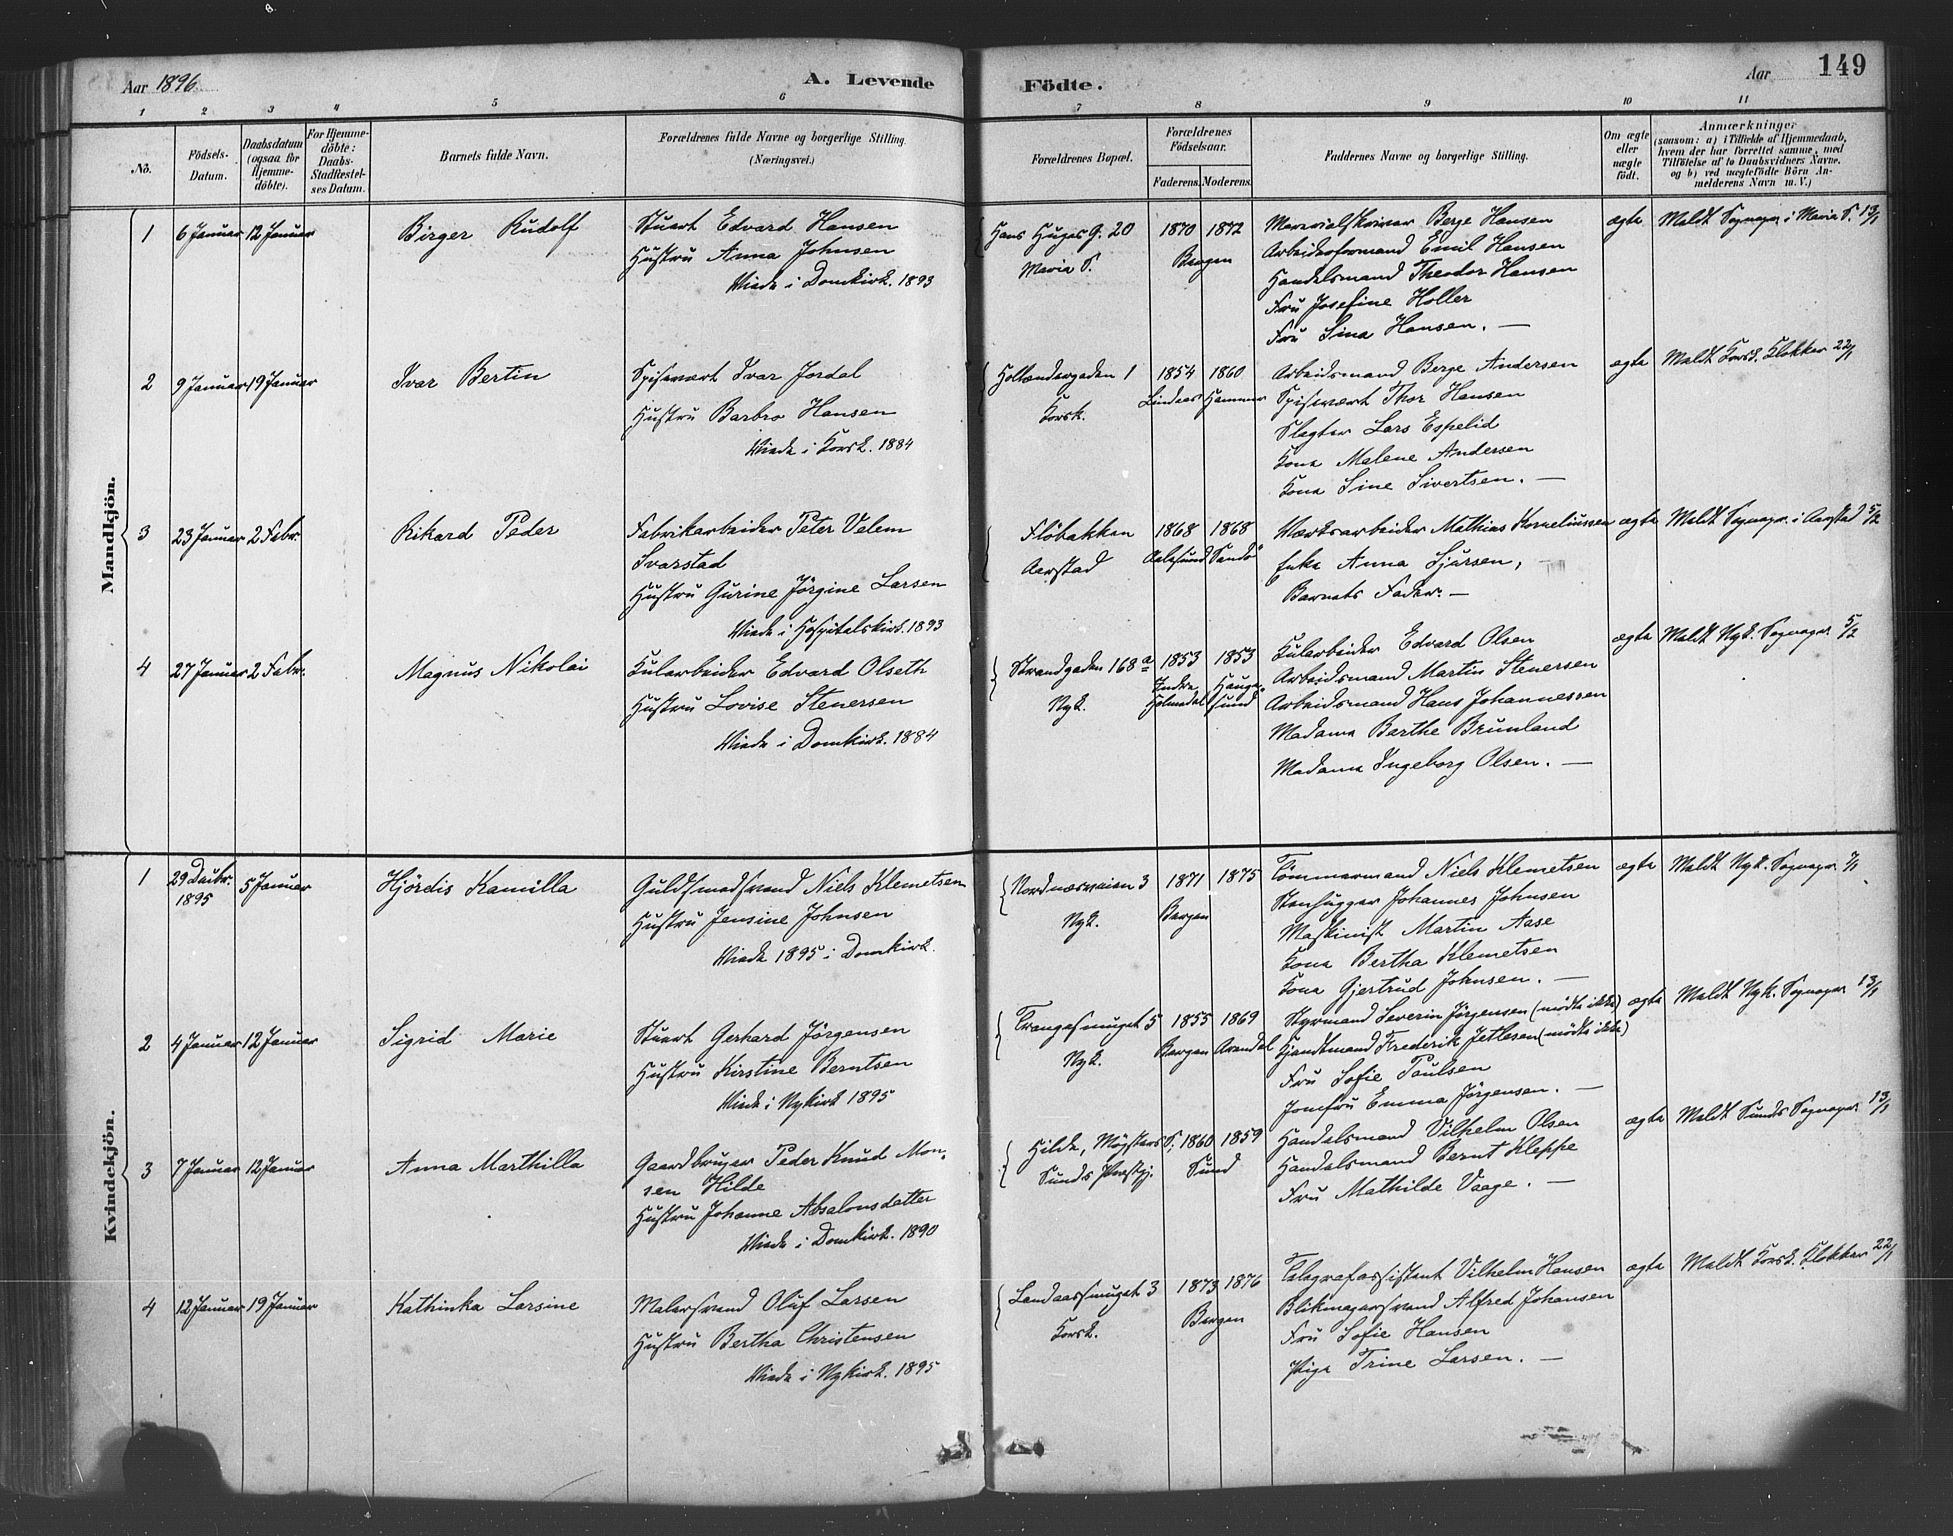 Aar 1896.
A. Levende
Födte.
Aar
149
1 2 3 4 5 6 7 8 9 10 11
No.
Födsels-
Datum.
Daabsdatum
(ogsaa for
Hjemme-
döbte).
For Hjemme-
döbte:
Daabs-
Stadfæstel-
ses Datum.
Barnets fulde Navn.
Forældrenes fulde Navne og borgerlige Stilling.
(Næringsvei.)
Forældrenes Bopæl.
Forældrenes
Födselsaar.
Faderens.
Moderens.
Faddernes Navne og borgerlige Stilling.
Om ægte
eller
uægte
födt.
Anmærkninger
(saasom: a) i Tilfælde af Hjemmedaab,
hvem der har forrettet samme, med
Tilföielse af to Daabsvidners Navne.
og b) ved uægtefödte Börn An-
melderens Navn m. V.)
Mandkjön.
1 6 Januar 12 Januar Birger Rudolf
Stuert Edvard Hansen
Hustru Anna Johnsen
Viede i Domkirk. 1893
Hans Huges G. 20
Maria S.
1870 1872
Bergen
Materialskriver Berge Hansen
Arbeidsformand Emil Hansen
Handelsmand Theodor Hansen
Fru Josefine Holler
Fru Sina Hansen. —
ægte
Meldt Sognepr. i Maria S. 13/1
2 9 Januar 19 Januar Ivar Bertin
Spisevært Ivar Jordal
Hustru Barbro Hansen
Viede i Korsk. 1884
Hollændergaden 1
Korsk.
1854 1860
Lindaas Hammer
Arbeidsmand Berge Andersen
Spisevært Thor Hansen
Slagter Lars Espelid
Kone Malene Andersen
Kone Sine Sivertsen. —
ægte
Meldt Korsk. Klokker 22/1
3 23 Januar 2 Febr. Rikard Peder
Fabrikarbeider Peter Velem
Svarstad
Hustru Gurine Jörgine Larsen
Viede i Hospitalskirk. 1893
Flöbakken
Aarstad
1868 1868
Aalesund Sandö
Værksarbeider Mathias Korneliussen
Enke Anna Sjursen,
Barnets Fader. —
ægte
Meldt Sognepr. i Aarstad 5/2
4 27 Januar 2 Febr. Magnus Nikolai
Kularbeider Edvard Olseth
Hustru Lovise Stenersen
Viede i Domkirk. 1884
Strandgaden 168 a
Nyk.
1853 1853
Indre
Holmedal
Hauge-
sund
Kularbeider Edvard Olsen
Arbeidsmand Martin Stenersen
Arbeidsmand Hans Johannessen
Madame Barthe Brunland
Madame Ingeborg Olsen. —
ægte
Meldt Nyk. Sognepr. 5/2
Kvindekjön.
1 29 Decbr. 1895 5 Januar Hjördis Kamilla
Guldsmedsvend Niels Klemetsen
Hustru Jensine Johnsen
Viede 1895 i Domkirk.
Nordnæsveien 3
Nyk.
1871 1875
Bergen
Tömmermand Niels Klemetsen
Stenhugger Johannes Johnsen
Maskinist Martin Aase
Kone Bertha Klemetsen
Kone Gjertrud Johnsen. —
ægte
Meldt Nyk. Sognepr. 7/1
2 4 Januar 12 Januar Sigrid Marie
Stuert Gerhard Jörgensen
Hustru Kirstine Berntsen
Viede i Nykirk 1895
Trangesmuget 5
Nyk.
1855 1869
Bergen Arendal
Styrmand Severin Jörgensen (mödte ikke)
Hjendtmand Frederik Jetlesen (mödte ikke)
Fru Sofie Paulsen
Jomfru Emma Jörgensen. —
ægte
Meldt Nyk. Sognepr. 13/1
3 7 Januar 12 Januar Anna Marthilla
Gaardbruger Peder Knud Mon-
sen Hilde
Hustru Johanne Absalonsdatter
Viede i Domkirk. 1890
Hilde, Møgsters S.
Sunds Præstgj.
1860 1859
Sund
Handelsmand Vilhelm Olsen
Handelsmand Bernt Kleppe
Fru Mathilde Vaage. —
ægte
Meldt Sunds Sognepr. 13/1
4 12 Januar 19 Januar Kathinka Larsine
Malersvend Oluf Larsen
Hustru Bertha Christensen
Viede i Nykirk. 1895
Landaassmuget 3
Korsk.
1873 1876
Bergen
Telegrafassistent Vilhelm Hansen
Blikmagersvend Alfred Johansen
Fru Sofie Hansen
Pige Trine Larsen. —
ægte
Meldt Korsk. Klokker 22/1